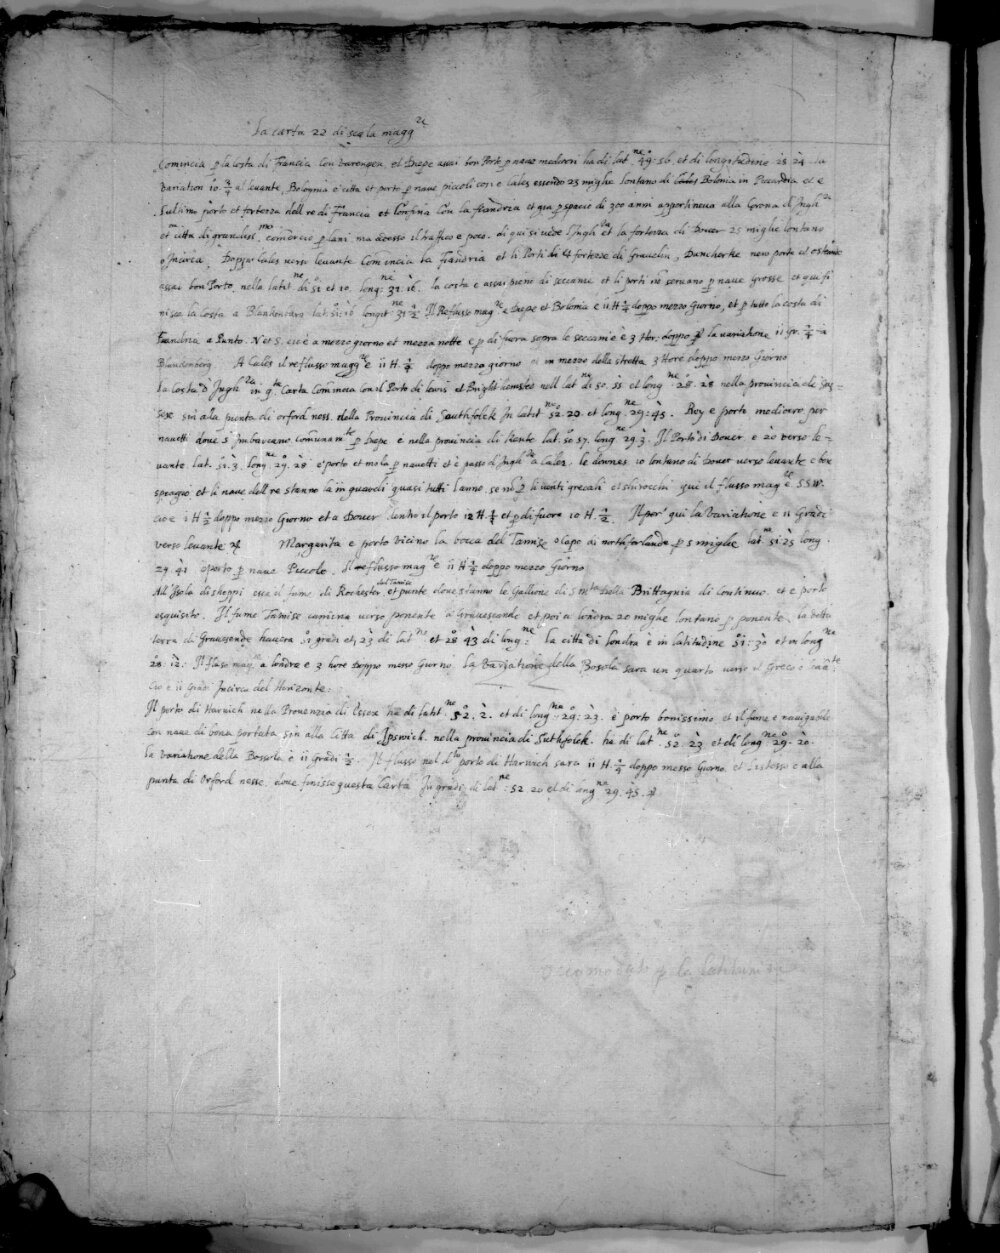 La carta 22 di scala magg.re
Comincia p la costa di Francia con et Diepe assai bon Porto p nave mediocri ha di lat.ne 49: 56. et di longitudine 25 24 la
Variation 10 3/4 al levante, Bolognia è citta et porto p nave piccoli cosi e Cales essendo 25 miglie lontano di Bolonia in Piccardia et e
l ultimo porto et fortezza dell re di Francia et Confina con la Fiandria et qua p spacio di 200 anni appertineva alla Corona d Ingh.da
et citta di grandiss.mo comercio p lani, ma adesso il traffico e poco. di qui si vede l Ingh.da et la fortezza di Dover 25 miglie lontano
o Incirca, Doppo Cales verso levante Comincia la Fiandria et li Porti et fortezze di Gravelin, Duncherke new porte et ostende
assai bon Porto, nella latit.ne di 51 et 10. long.ne 31: 16. la costa e assai piena di seccanie et li porti no servano p nave grosse et qui fi-
nisce la Costa a Blandenburg lat. 51: 16 longit.ne 31 1/2 Il Reflusso mag.re a Diepe et Bolonia e 11 H 1/4 doppo mezzo Giorno, et p tutto la costa di
Fiandria, a Punto. N et S. cio è a mezzo giorno et mezza notte e p di fuora sopra le seccanie è 3 Hor. doppo p la variatione 11 gr. 3/4 a
Blandenberg A Cales il reflusso magg.re è 11 H. 1/2 doppo mezzo giorno et in mezzo della stretta 3 Hore doppo mezzo Giorno
la Costa d Ingh.da in q.ta Carta Comincia con il Porto di lewis et Brighthemsted nell lat.ne di 50. 55 et long.ne 28. 28 nella provincia di Sus-
sese sin alla punta di orford ness. della Provincia di Southfolck In latit.ne 52. 20 et long.ne 29: 45. Roy e porto mediocre per
navetti dove s imbarcano comunam.te p Diepe è nella provincia di Kente lat. 50 57. long.ne 29 3. Il Porto di Dover è 20 verso le-
vante. lat. 51. 3. long.ne 29. 28 e porto et mola p navetti et è passo d Ingh.da a Calez. le downes 10 lontano di Dover verso levante e bon
spiaggio et li nave dell re stanno la in guardi quasi tutti l anno. se no p li venti grecali et schirocchi qui il flusso mag.re è S S W
cio e 1 H 1/2 doppo mezzo Giorno et a Dover dentro il porto 12 H. et p di fuora 10 H. 1/2. Il per qui la Variatione e 11 Gradi
verso levante Margarita e porto vicino la bocca del Tamise o Capo di northforlande p 5 miglie lat.ne 51: 25 long.
29 41 e porto p nave Piccole. Il reflusso mag.re è 11 H 1/4 doppo mezzo Giorno
All Isola di sheppi esce il fume di Rochester del Tamise et punte dove stanno le Gallione di S M.ta della Brittagnia di Continuo. et e porto
esquisito. Il fume Tamise camina verso ponente a Gravesende et poi a londra 20 miglie lontano p ponente, la detta
terra di Gravesende havera 51 gradi et, 23 di lat.ne et 28 43 di long.ne: la citta di londra è in latitudine 51: 30 et in long.ne
28: 12. Il fluso mag.re a londre e 3 hore doppo mezo Giorno la Variatione della Bosola sara un quarto verso il Greco
cio è 11 Gradi Incirca del Horizonte:
Il porto di Harwich nella Provenzia di Essex ha di latit.ne 52. 2. et di long.ne 29: 23. è porto bonissimo et il fume e navigabile
con nave di bona portata sin alla Citta di Ipswich. nella provincia di Suthfolck. ha di lat.ne 52. 23 et di long.ne 29. 20.
la variatione della Bossola è 11 gradi 1/2. Il flusso nel d.to porto di Harwich sara 11 H. 1/4 doppo mezzo Giorno. et l istesso e alla
punta di Orford nesse. dove finisse questa Carta In gradi di lat.ne: 52 20 et di long.ne 29. 45.
accomodato p la latitudine